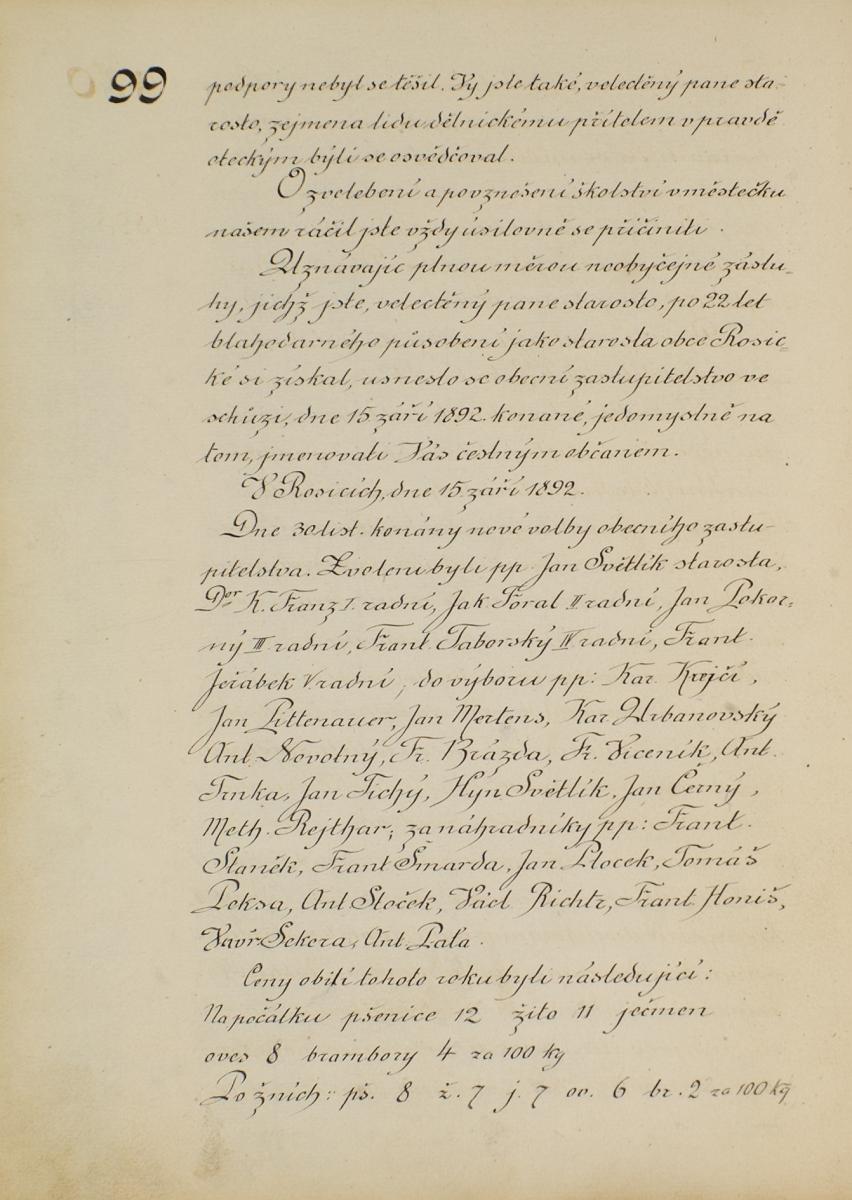 99
podpory nebyl se těšil. Vy jste také, velectěný pane sta-
rosto, zejmena lidu dělnickému přítelem vpravdě
oteckým býti se osvědčoval.
O zvelebení a povznešení školství v městečku
našem ráčil jste vždy úsilovně se přičiniti.
Uznávajíc plnou měrou neobyčejné záslu-
hy, jichž jste, velectěný pane starosto, po 22 let
blahodarného působení jako starosta obce Rosic-
ké si získal, usneslo se obecní zastupitelstvo ve
schůzi, dne 15 září 1892. konané, jedomyslně na
tom, jmenovati Vás čestným občanem.
V Rosicích, dne 15. září 1892.
Dne 30 list. konány nové volby obecního zastu-
pitelstva. Zvoleni byli pp Jan Světlík starosta,
Dor K. Franz I. radní, Jak Foral II radní, Jan Pokor-
ný III radní, Frant. Taborský IV radní, Frant.
Jeřábek V radní; do výboru pp: Kar. Krejčí,
Jan Pittenauer, Jan Mertens, Kar Urbanovský
Ant. Novotný, Fr. Brázda, Fr. Viceník, Ant.
Trnka, Jan Tichý, Hyn. Světlík, Jan Černý,
Meth. Rejthar; za náhradníky pp: Frant.
Staněk, Frant Šmarda, Jan Plocek, Tomáš
Poksa, Ant Stoček, Václ Richtr, Frant. Honiš,
Vavř Sekera, Ant. Paťa.
Ceny obilí tohoto roku byli následující:
Na počátku pšenice 12 žito 11 ječmen
oves 8 brambory 4 za 100 kg
Po žních: pš. 8 ž. 7 j. 7 ov. 6 br. 2 za 100 kg